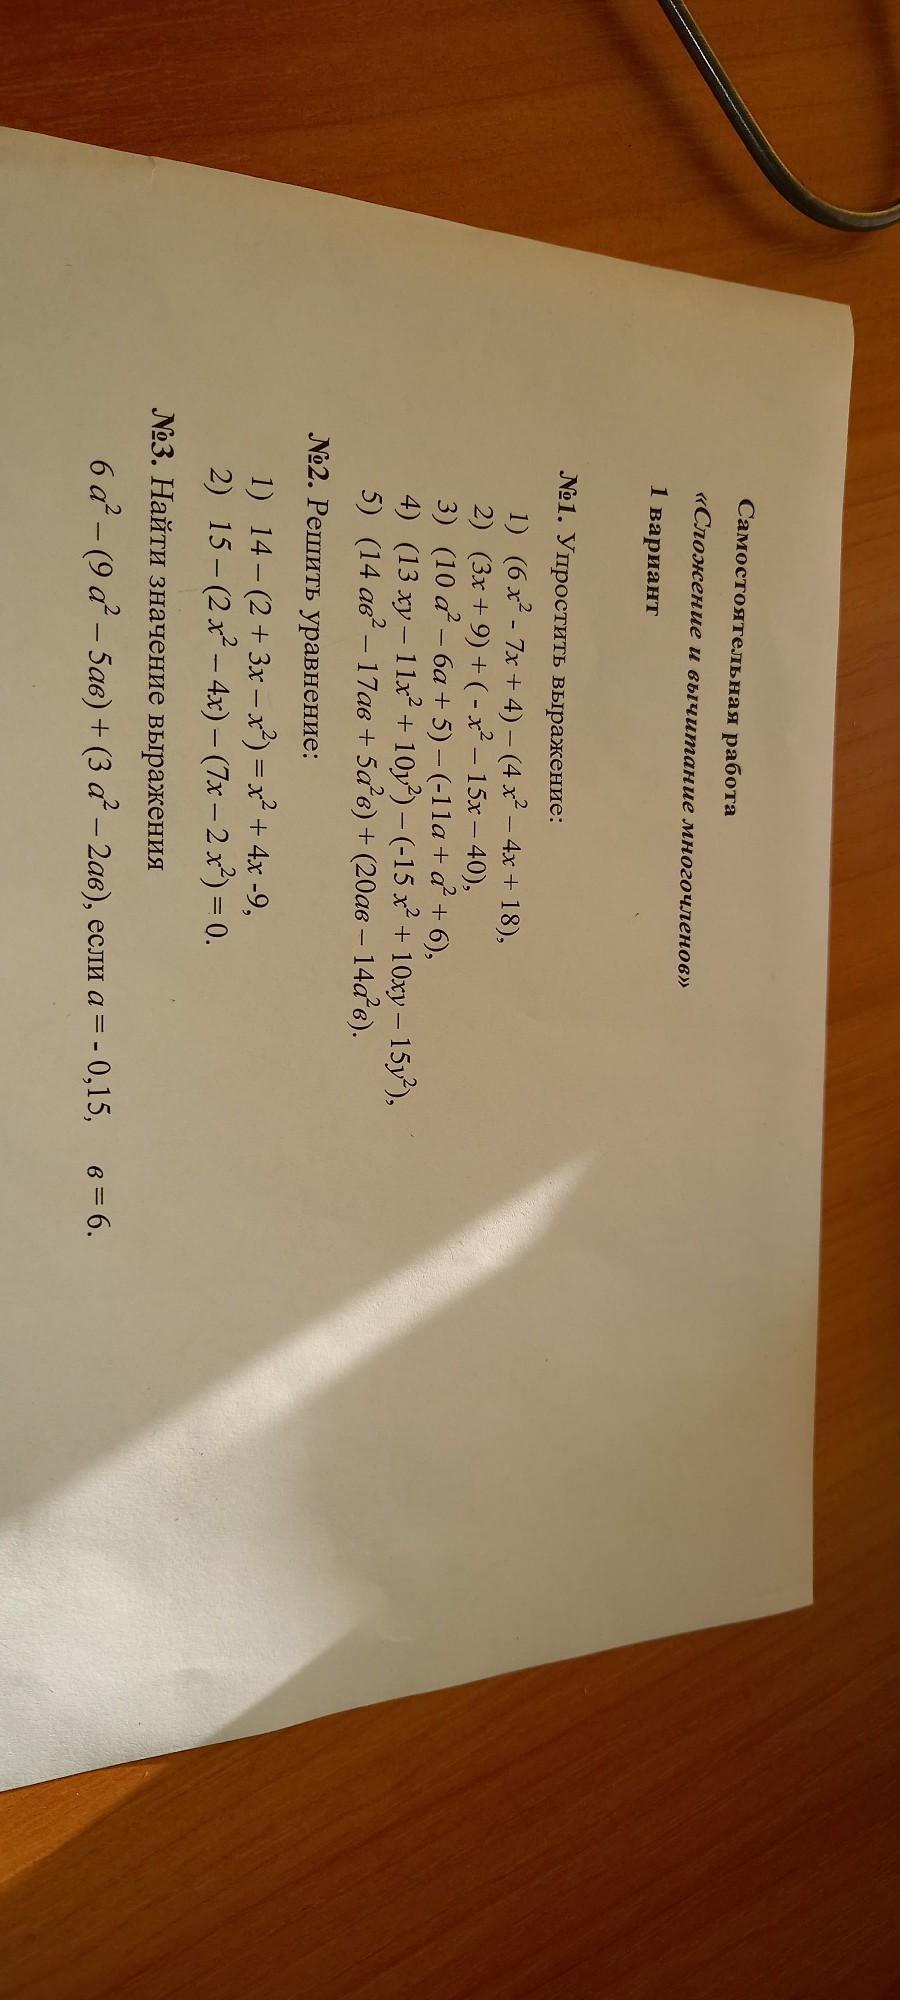 Самостоятельная работа
«Сложение и вычитание многочленов»
1 вариант
№1. Упростить выражение:
1) (6 x² - 7x + 4) – (4 x² – 4x + 18),
2) (3x + 9) + ( - x² – 15x – 40),
3) (10 a² – 6a + 5) – (-11a + a² + 6),
4) (13 xy – 11x² + 10y²) – (-15 x² + 10xy – 15y²),
5) (14 ав² – 17ав + 5а²в) + (20ав – 14а²в).
№2. Решить уравнение:
1) 14 – (2 + 3x – x²) = x² + 4x -9,
2) 15 – (2 x² – 4x) – (7x – 2 x²) = 0.
№3. Найти значение выражения
6 а² – (9 а² – 5ав) + (3 а² – 2ав), если а = - 0,15, в = 6.